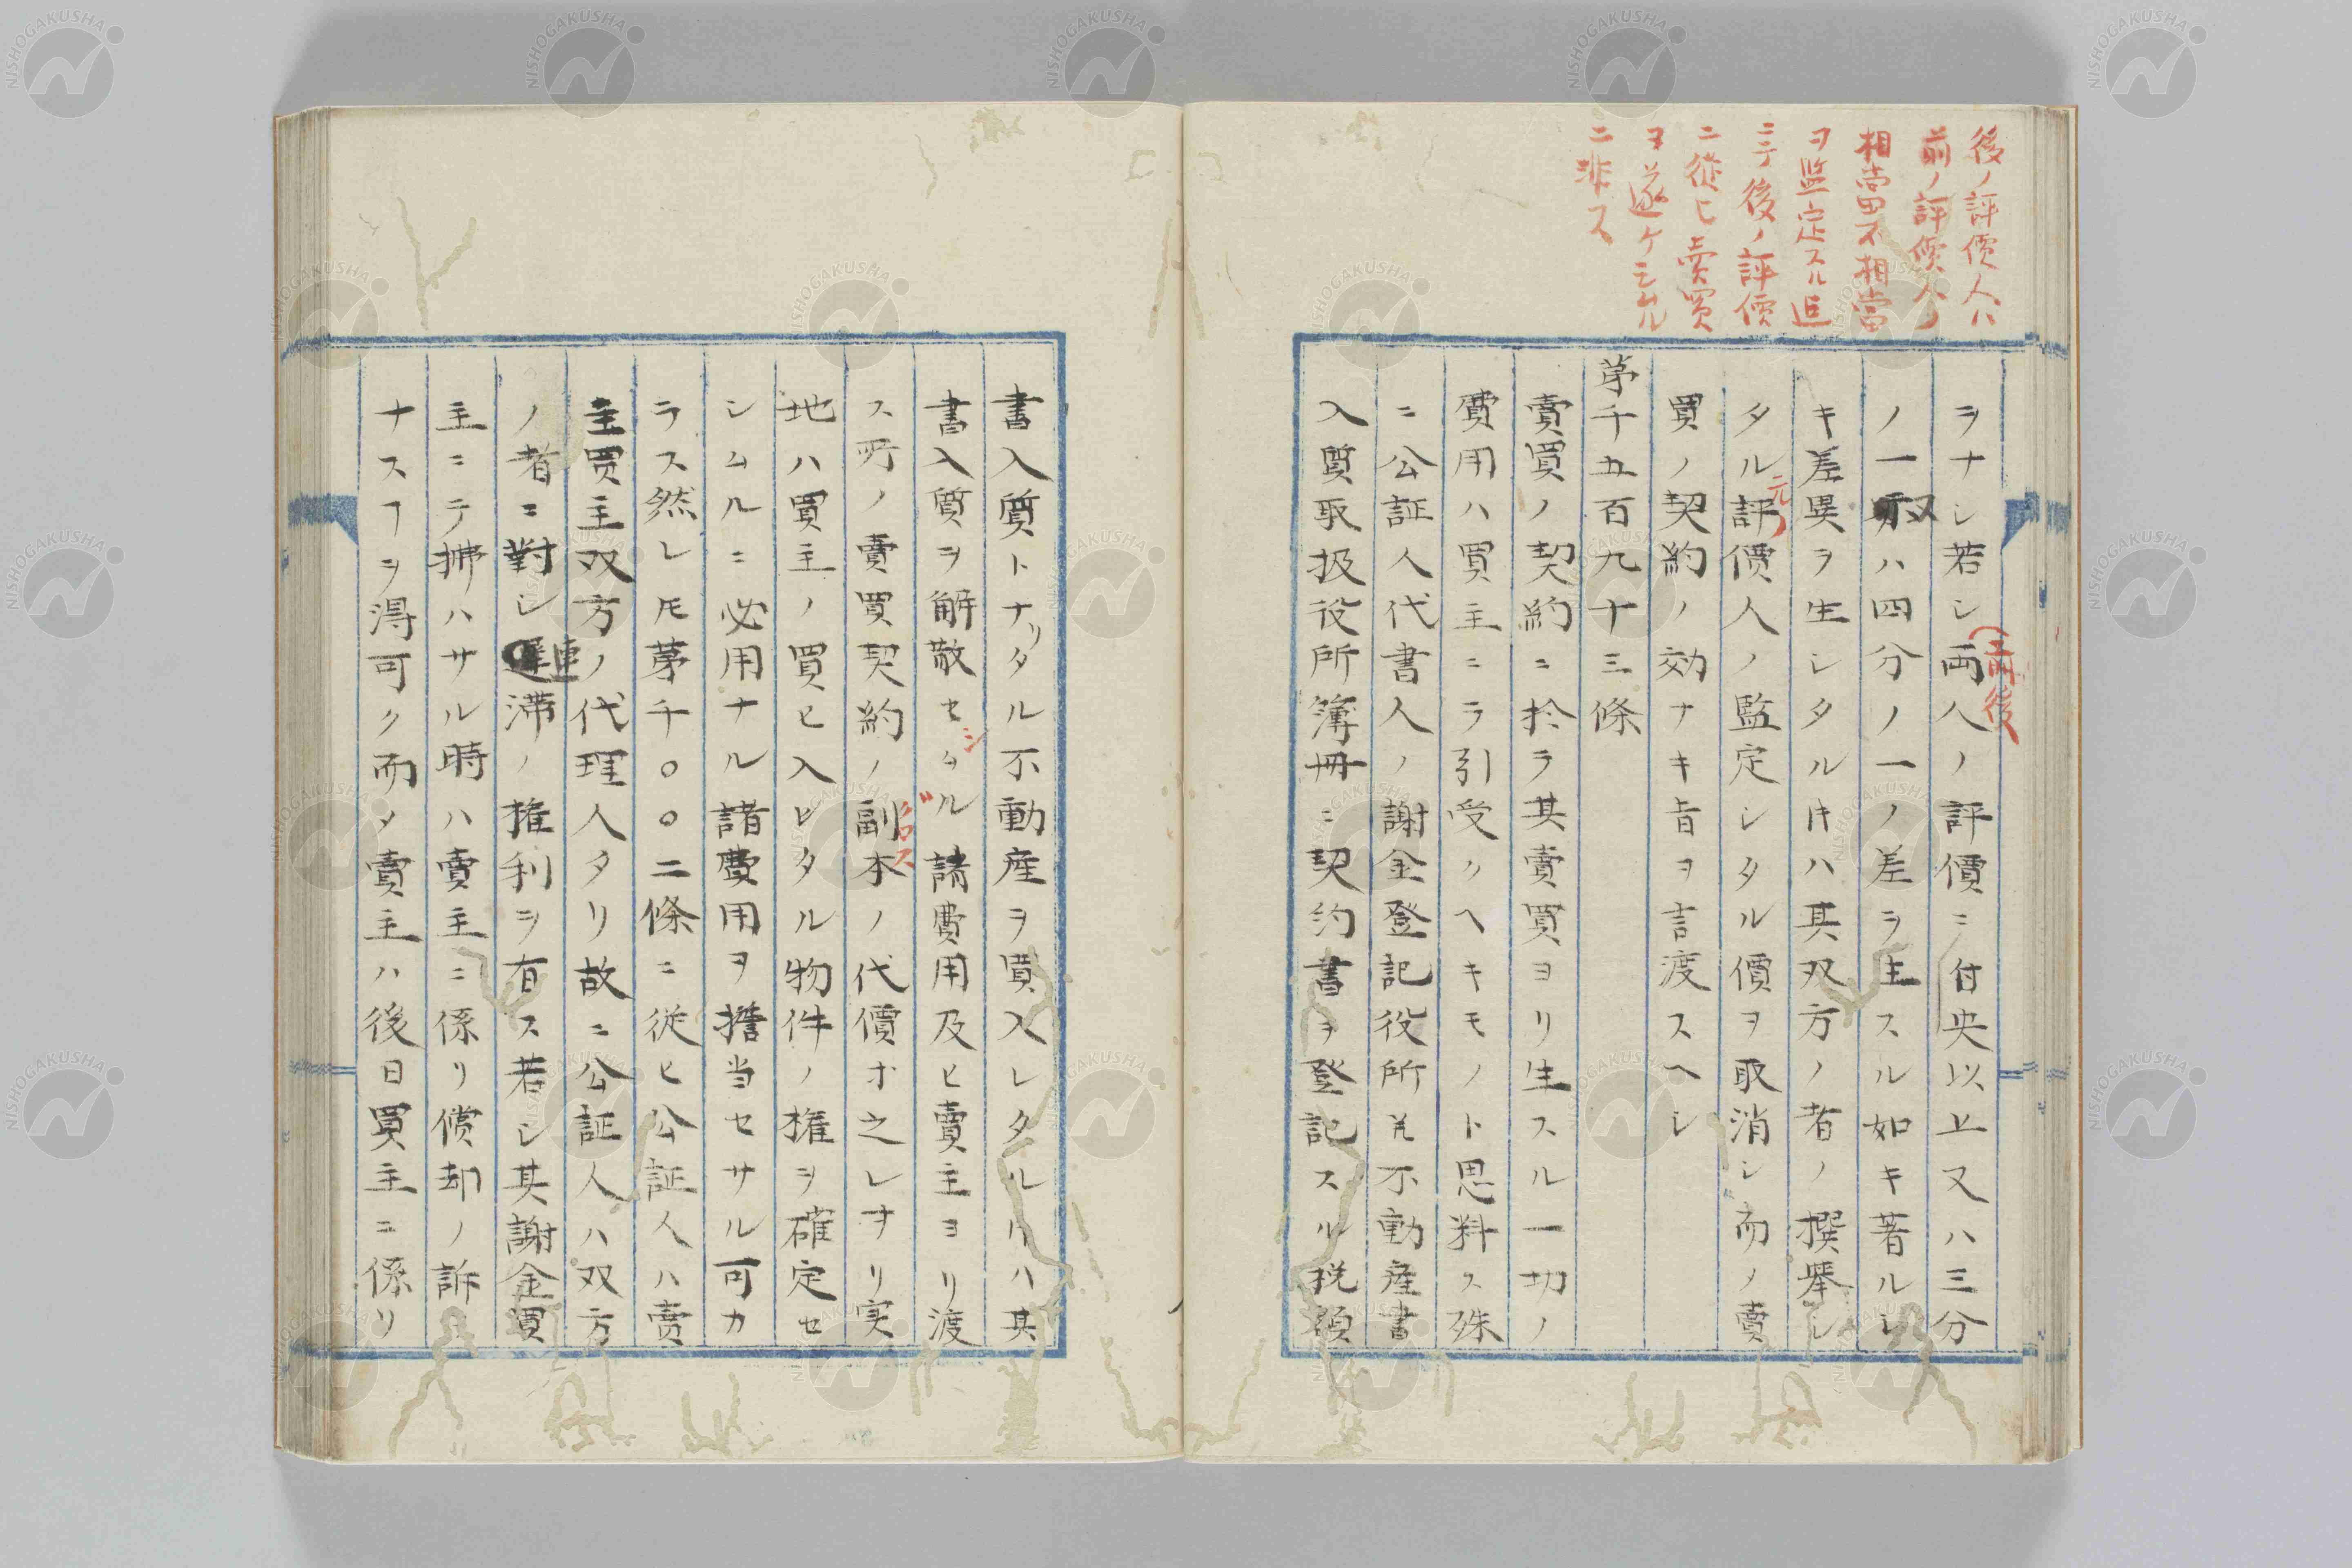 後ノ評價人ハ
前ノ評價人ノ
相當不相當
ヲ監定スル迠
ニテ後ノ評價
ニ従ヒ賣買
ヲ遂ケシムル
ニ非ス
ヲナシ若シ両人ノ評價ニ付央以上又ハ三分
前後
ノ一又ハ四分ノ一ノ差ヲ生スル如キ著ルシ
キ差異ヲ生シタル片ハ其双方ノ者ノ撰擧シ
タル評價人ノ監定シタル價ヲ取消シ而ノ賣
元ノ
買ノ契約ノ効ナキ旨ヲ言渡スヘシ
茅千五百九十三條
賣買ノ契約ニ於テ其賣買ヨリ生スル一切ノ
費用ハ買主ニテ引受クヘキモノト思料ス殊
ニ公証人代書人ノ謝金登記役所並不動産書
入質取扱役所簿冊ニ契約書ヲ登記スル税額
書入質トナリタル不動産ヲ買入レタル片ハ其
書入質ヲ解散セシムル諸費用及ヒ賣主ヨリ渡
ス所ノ賣買契約ノ副本ノ代價才之レヲリ実
グロス
地ハ買主ノ買ヒ入レタル物件ノ権ヲ確定セ
シムルニ必用ナル諸費用ヲ擔当セサル可カ
ラス然レ𪜈茅千〇〇二條ニ従ヒ公証人ハ賣
主買主双方ノ代理人タリ故ニ公証人ハ双方
ノ者ニ對シ連滞ノ権利ヲ有ス若シ其謝金買
主ニテ拂ハサル時ハ賣主ニ係リ償却ノ訴
ナスヿヲ淂可ク而ノ賣主ハ後日買主ニ係リ
NISHOGAKUSHA